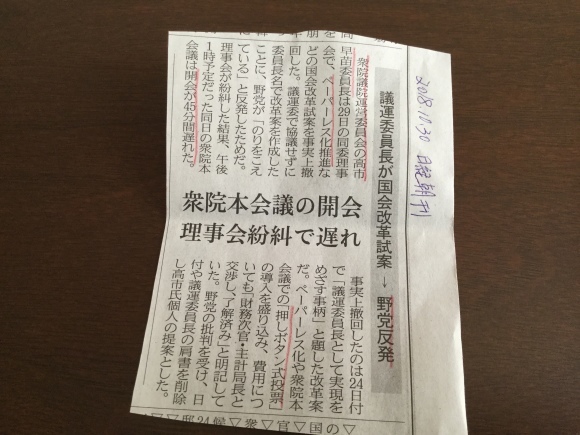 2018.11.30 日経朝刊
議運委員長が国会改革試案→野党反発
衆院本会議の開会
理事会紛糾で遅れ
衆院議院運営委員会の高市
早苗委員長は29日の同委理事
会で、ペーパーレス化推進な
どの国会改革試案を事実上撤
回した。議運委で協議せずに
委員長名で改革案を作成した
ことに、野党が「のりをこえ
ている」と反発したためだ。
理事会が紛糾した結果、午後
1時予定だった同日の衆院本
会議は開会が45分間遅れた。
事実上撤回したのは24日付
で「議運委員長として実現を
めざす事柄」と題した改革案
だ。ペーパーレス化や衆院本
会議での「押しボタン式投票」
の導入を盛り込み、費用につ
いても「財務次官・主計局長と
交渉し、了解済み」と明記して
いた。野党の批判を受け、日
付や議運委員長の肩書を削除
し高市氏個人の提案とした。